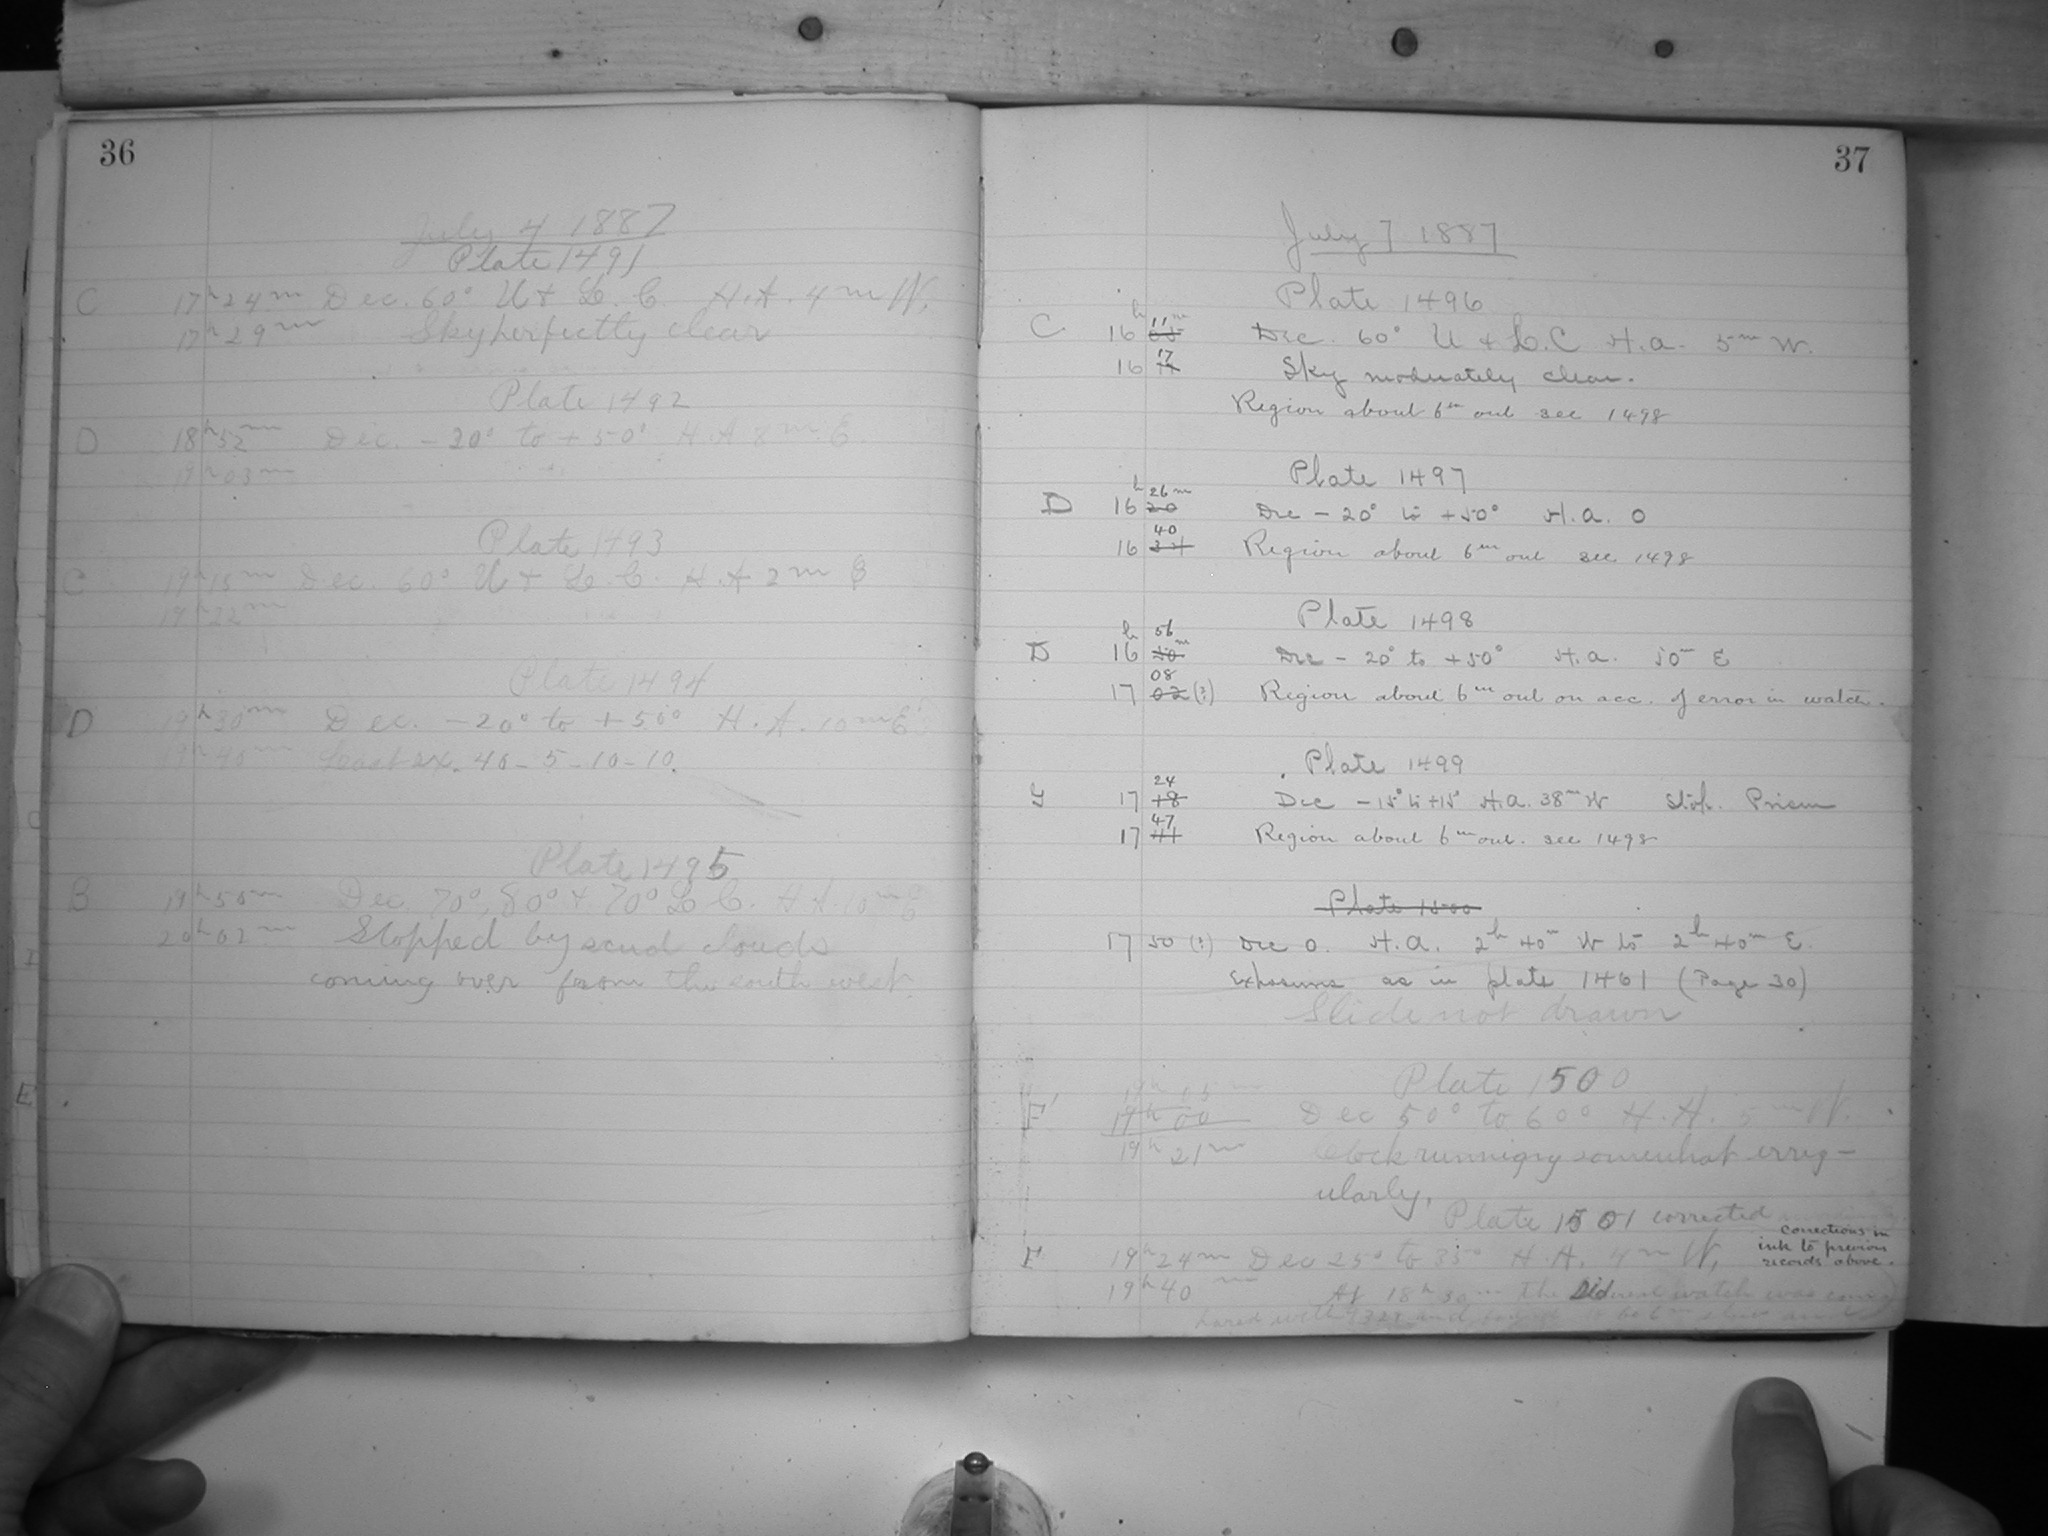 36
July 4 1887
Plate 1491
C 17h 24m Dec. 60° U + L. C. H.A. 4m W.
17h 29m Sky perfectly clear
Plate 1492
D 18h 52m Dec. -20° to +50° H.A 8m E.
19h 03m
Plate 1493
C 19h 15m Dec. 60° U + L. C. H.A 2m E
19h 22m
Plate 1494
D 19h 30m Dec. -20° to +50° H.A. 10m E.
19h 40m Last ex. 40-5-10-10.
Plate 1495
B 19h 50m Dec. 70°, 80° + 70° L. C. H.A. 10m E
20h 02m Stopped by scud clouds
coming over from the south west.
37
July 7 1887
Plate 1496
C 16h 11m Dec. 60° U + L.C H.A. 5m W.
16 17 Sky moderately clear.
Region about 6m out see 1498
Plate 1497
D 16h 26m 20 Dec -20° to +50° H.A. 0
16 40 34 Region about 6m out see 1498
Plate 1498
D 16h 56 50m Dec -20° to +50° H.A. 50m E
17 08 02 (?) Region about 6m out on acc. of error in watch.
Plate 1499
17 24 18 Dec -15° to +15° H.A. 38m W Prism
17 47 41 Region about 6m out. see 1498
Plate 1500
17 50 (?) Dec 0. H.A. 2h 40m W to 2h 40m E.
Exposures as in plate 1461 (Page 30)
Slide not drawn
Plate 1500
F 19h 05m
19h 00 Dec 50° to 60° H.A. 5m W.
19h 21m Clock running somewhat irreg-
ularly.
Plate 1501 corrected
corrections in
ink to previous
records above.
F 19h 24m Dec 25° to 35° H.A. 4m W.
19h 40m At 18h 30m the Sidereal watch was com-
pared with and found to be 6m slow and